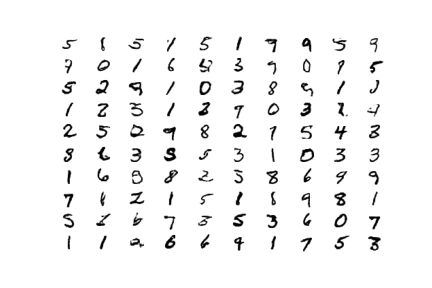 5 1 5 1 5 1 9 9 5 9
7 0 1 6 5 3 9 0 9 5
5 2 9 1 0 3 8 9 1
1 2 3 1 2 9 0 3 2
2 5 0 9 8 2 7 5 4 3
8 6 3 5 5 3 1 0 3 3
1 6 9 8 2 3 8 6 9 9
7 2 1 5 1 8 9 8 1
5 2 6 7 3 5 3 6 0 7
1 1 2 6 6 9 1 7 5 3